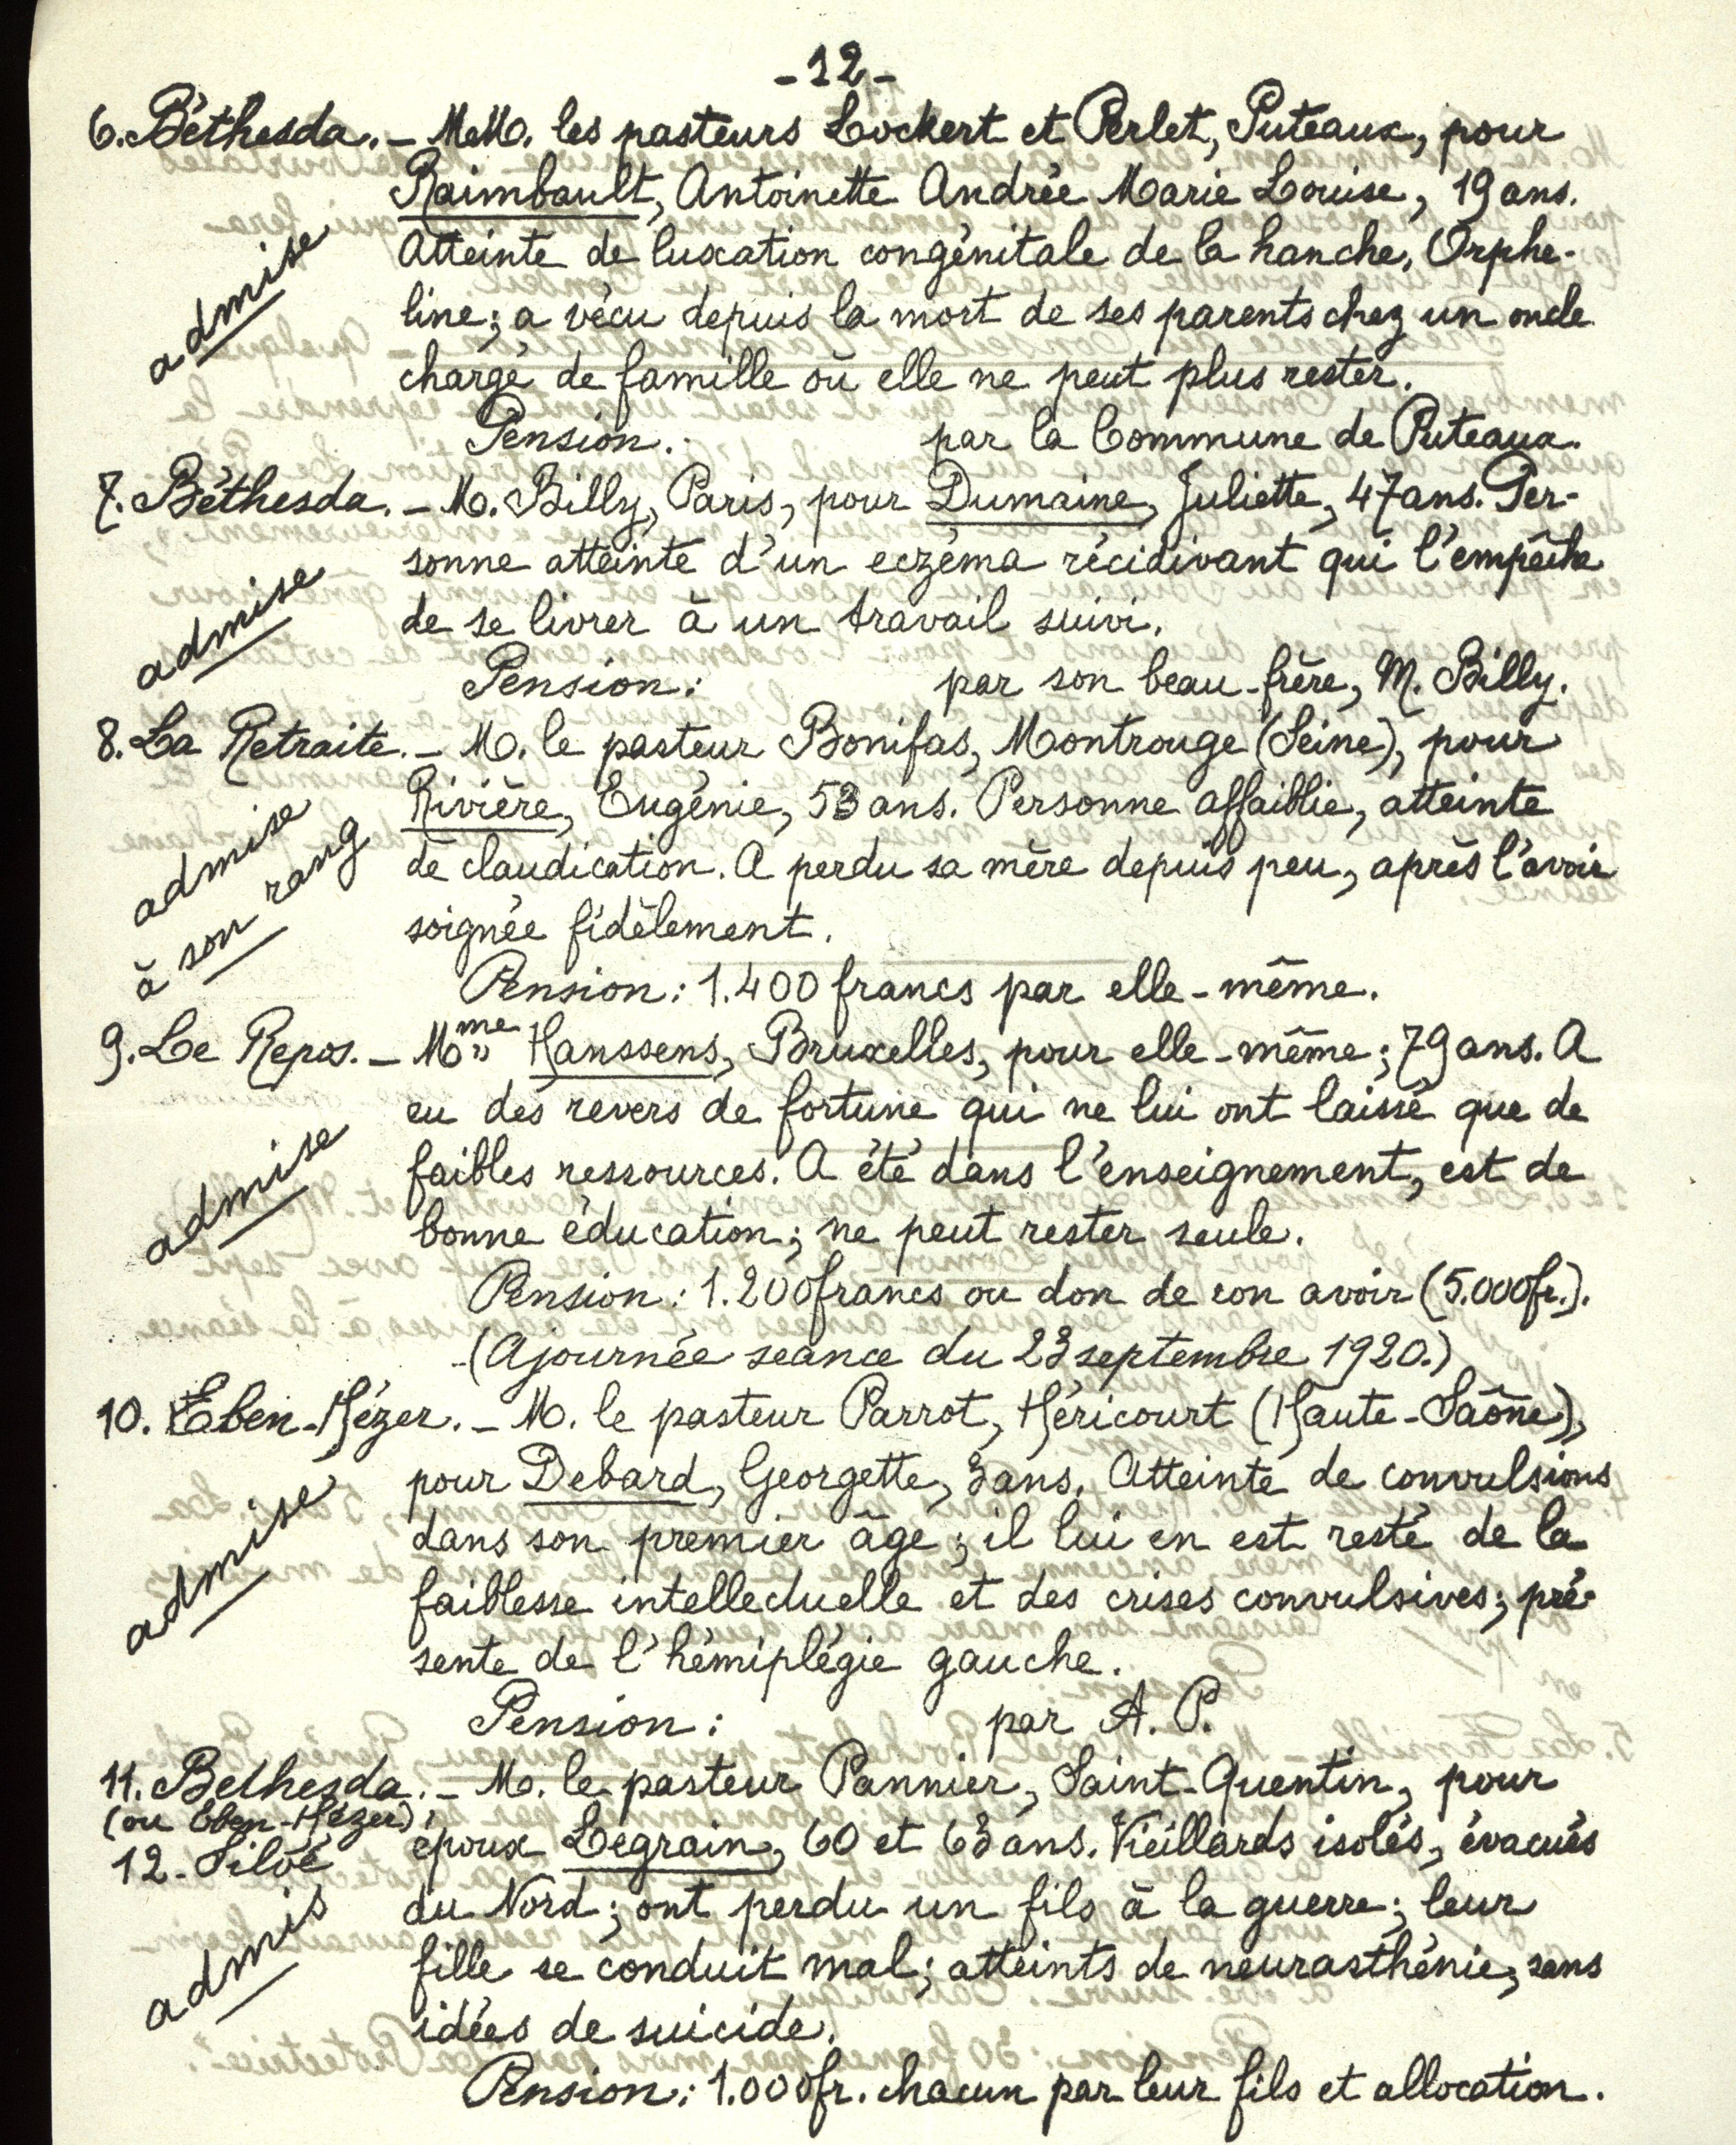 -12-
6. Béthesda. - MM. les pasteurs Lockert et Perlet, Puteaux, pour
Raimbault, Antoinette Andrée Marie Louise, 19 ans.
admise
Atteinte de luxation congénitale de la hanche, Orphe-
line; a vécu depuis la mort de ses parents chez un oncle
chargé de famille où elle ne peut plus rester.
Pension: par la Commune de Puteaux.
7. Béthesda. - M. Billy, Paris, pour Dumaine, Juliette, 47 ans. Per-
sonne atteinte d'un eczéma récidivant qui l'empêche
admise
de se livrer à un travail suivi.
Pension: par son beau-frère, M. Billy.
8. La Retraite. - M. le pasteur Bonifas, Montrouge (Seine), pour
Rivière, Eugénie, 53 ans. Personne affaiblie, atteinte
admise
à son rang
de claudication. A perdu sa mère depuis peu, après l'avoir
soignée fidèlement.
Pension: 1.400 francs par elle-même.
9. Le Repos. - Mme Hanssens, Bruxelles, pour elle-même; 79 ans. A
eu des revers de fortune qui ne lui ont laissé que de
faibles ressources. A été dans l'enseignement, est de
admise
bonne éducation; ne peut rester seule.
Pension: 1.200 francs ou don de son avoir (5.000 fr.).
(Ajournée séance du 23 septembre 1920.)
10. Eben-Hézer. - M. le pasteur Parrot, Héricourt (Haute-Saône),
pour Debard, Georgette, 3 ans. Atteinte de convulsions
admise
dans son premier âge; il lui en est resté de la
faiblesse intellectuelle et des crises convulsives; pré-
sente de l'hémiplégie gauche.
Pension: par A. P.
11. Bethesda. - M. le pasteur Pannier, Saint-Quentin, pour
(ou Eben-Hézer)
12. Siloé
époux Legrain, 60 et 63 ans. Vieillards isolés, évacués
du Nord; ont perdu un fils à la guerre; leur
admis
fille se conduit mal; atteints de neurasthénie, sans
idées de suicide.
Pension: 1.000 fr. chacun par leur fils et allocation.